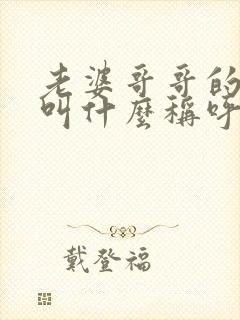 老婆哥哥的
叫什麼稱呼
戴登福